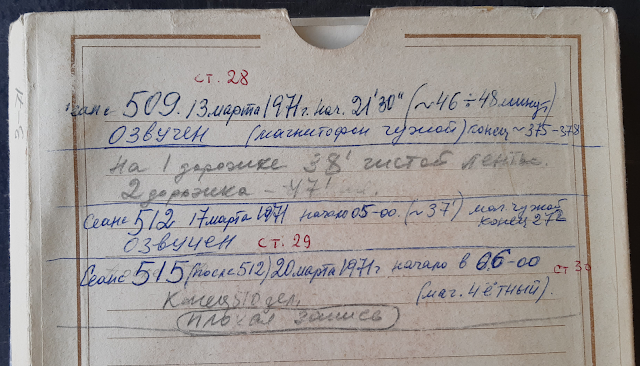 ст. 28
Сеанс 509. 13 марта 1971 г. нач. 21'30" (~46÷48 минут)
ОЗВУЧЕН (магнитофон чужой) конец ~375-378
на 1 дорожке 38' чистой ленты
2 дорожка - 47'
Сеанс 512 17 марта 1971 начало 05-00. (~37') маг. чужой
конец 272
ОЗВУЧЕН ст. 29
Сеанс 515 (после 512) 20 марта 1971 г начало в 06-00 ст 30
Конец 510 дел. (маг. чётный).
плохая запись
3-71